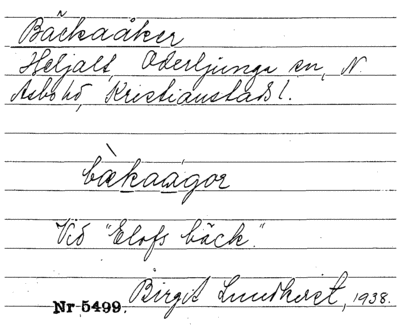 Bäckaåker
Heljalt, Oderljunga sn, N.
Åsbo hd, Kristianstads l.
bàkaågor
Vid "Elofs bäck".
Birgit Lundkvist, 1938.
Nr 5499.